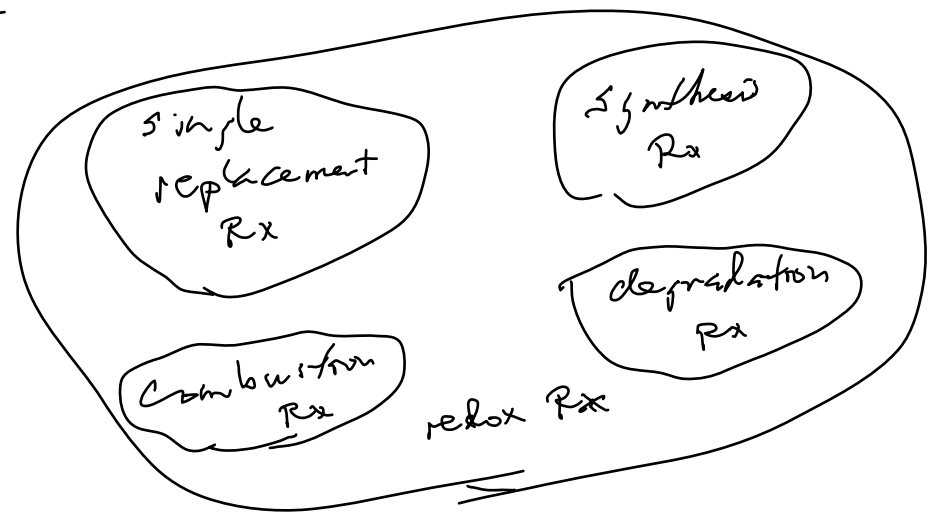 single
replacement
Rx
synthesis
Rx
degradation
Rx
combustion
Rx
redox Rx